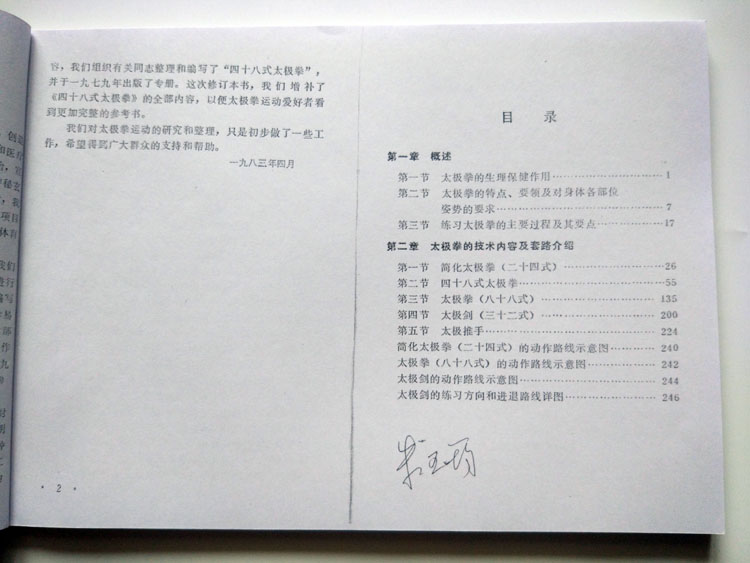 容，我们组织有关同志整理和编写了“四十八式太极拳”，
并于一九七九年出版了专册。这次修订本书，我们增补了
《四十八式太极拳》的全部内容，以便太极拳运动爱好者看
到更加完整的参考书。
我们对太极拳运动的研究和整理，只是初步做了一些工
作，希望得到广大群众的支持和帮助。
一九八三年四月
· 2 ·
目 录
第一章 概述
第一节 太极拳的生理保健作用……………1
第二节 太极拳的特点、要领及对身体各部位
姿势的要求……………7
第三节 练习太极拳的主要过程及其要点……………17
第二章 太极拳的技术内容及套路介绍
第一节 简化太极拳（二十四式）……………26
第二节 四十八式太极拳……………55
第三节 太极拳（八十八式）……………135
第四节 太极剑（三十二式）……………200
第五节 太极推手……………224
简化太极拳（二十四式）的动作路线示意图……………240
太极拳（八十八式）的动作路线示意图……………242
太极剑的动作路线示意图……………244
太极剑的练习方向和进退路线详图……………246